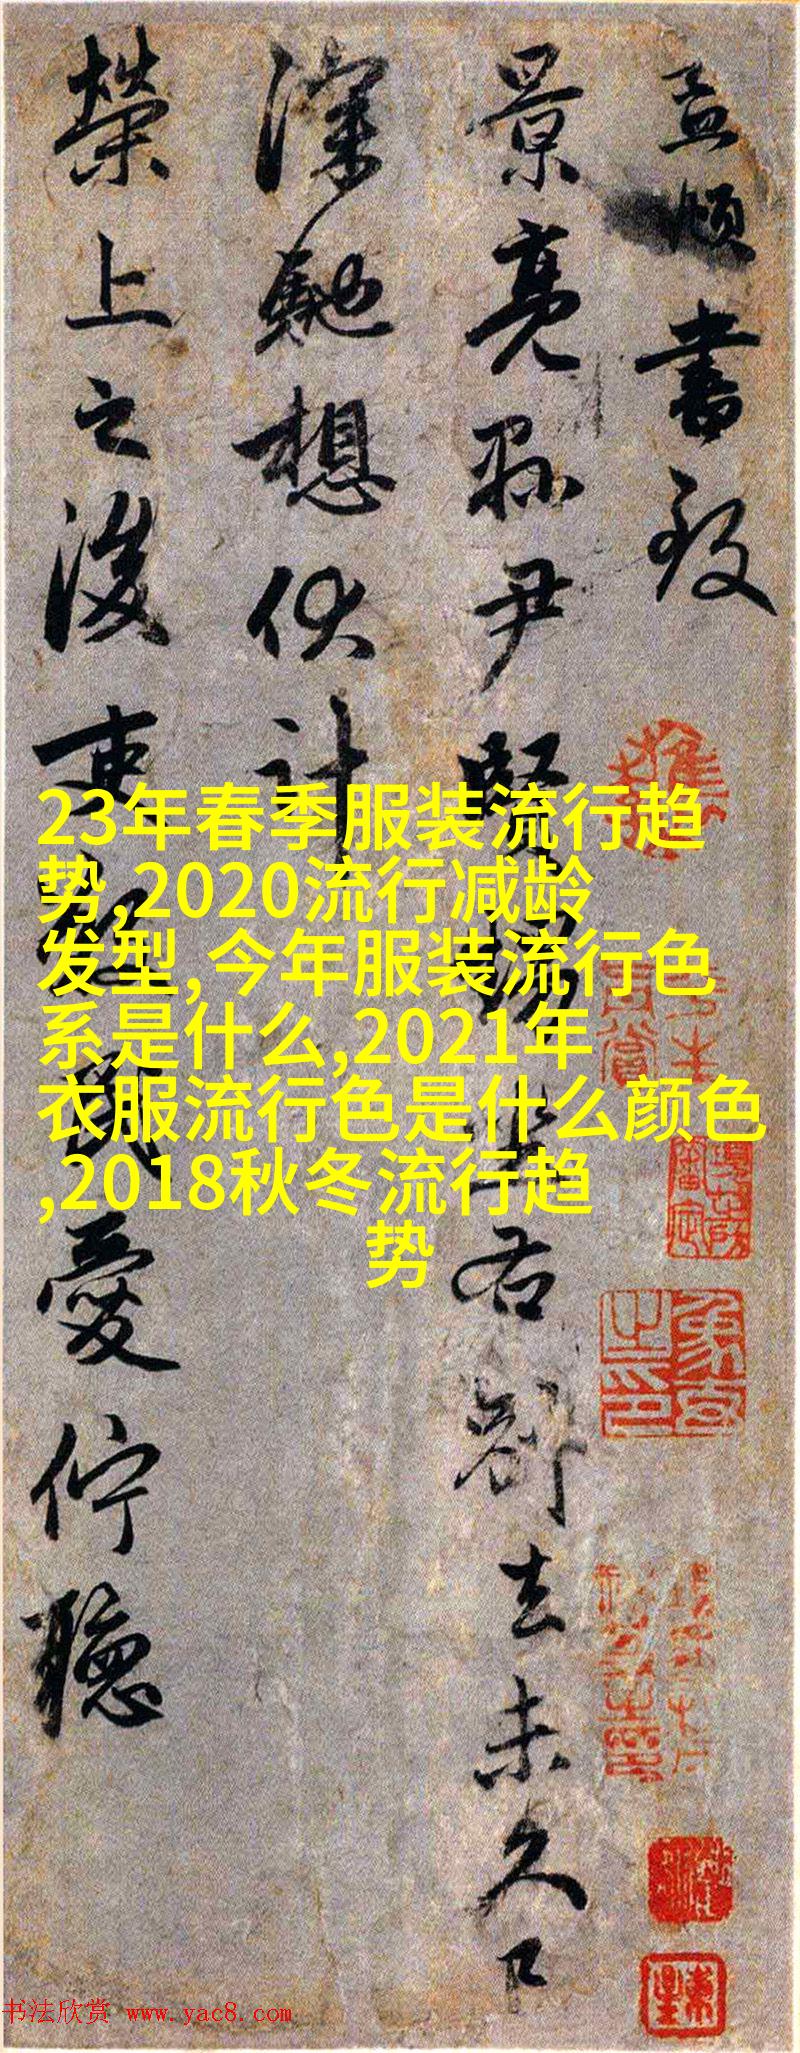 孟頫書致
景亮縣尹賢坐右別去未久
深馳想伏計
榮上之後吏民愛佇聽
23年春季服装流行趋
势,2020流行减龄
发型,今年服装流行色
系是什么,2021年
衣服流行色是什么颜色
,2018秋冬流行趋
势
书法欣赏 www.yac8.com